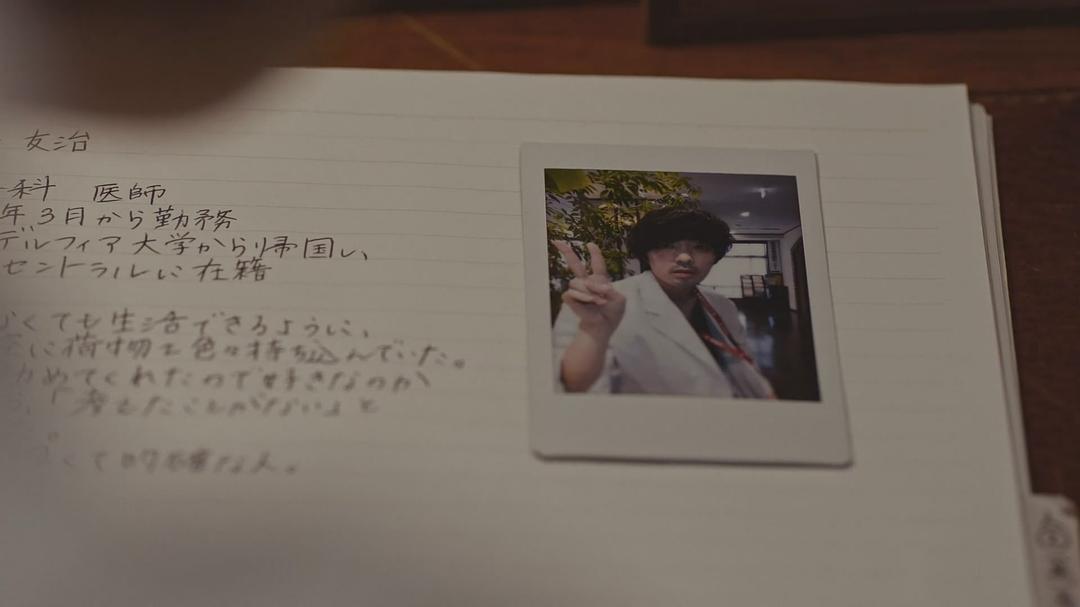 友治
科 医師
年3月から勤務
デルフィア大学から帰国し、
セントラルに在籍
くても生活できるように、
に荷物を色々持ち込んでいた。
めてくれたので好きなのか
考えたことがないよと
くて的確な人。